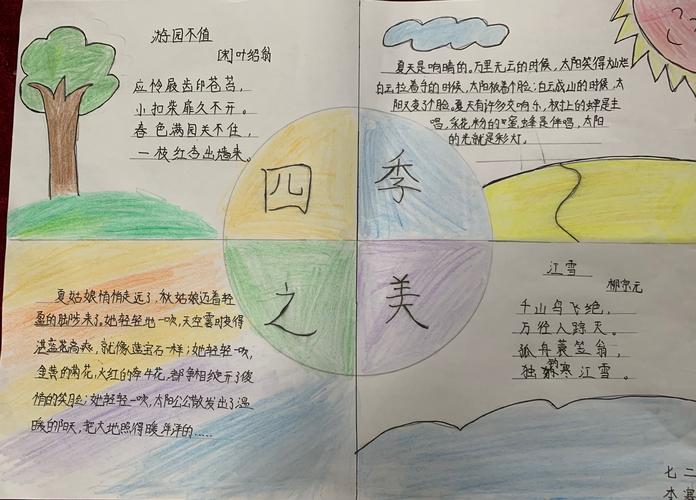 游园不值
[宋]叶绍翁
应怜屐齿印苍苔，
小扣柴扉久不开。
春色满园关不住，
一枝红杏出墙来。
夏天是晴的。万里无云的时候，太阳笑得灿烂
白云拉着手的时候，太阳板着个脸；白云成山的时候，太
阳又变个脸。夏天有许多交响乐，树上的蝉是主
唱，采花粉的蜜蜂是伴唱，太阳
的光就是彩灯。
四季
之美
夏姑娘悄悄走远了，秋姑娘迈着轻
盈的脚步来了。她轻轻地一吹，天空霎时变得
湛蓝高爽，就像蓝宝石一样；她轻轻一吹，
金黄的菊花，大红的牵牛花，都争相绽开了俊
俏的笑脸；她轻轻一吹，太阳公公散发出了温
暖的阳光，把大地照得暖洋洋的……
江雪
柳宗元
千山鸟飞绝，
万径人踪灭。
孤舟蓑笠翁，
独钓寒江雪。
七二